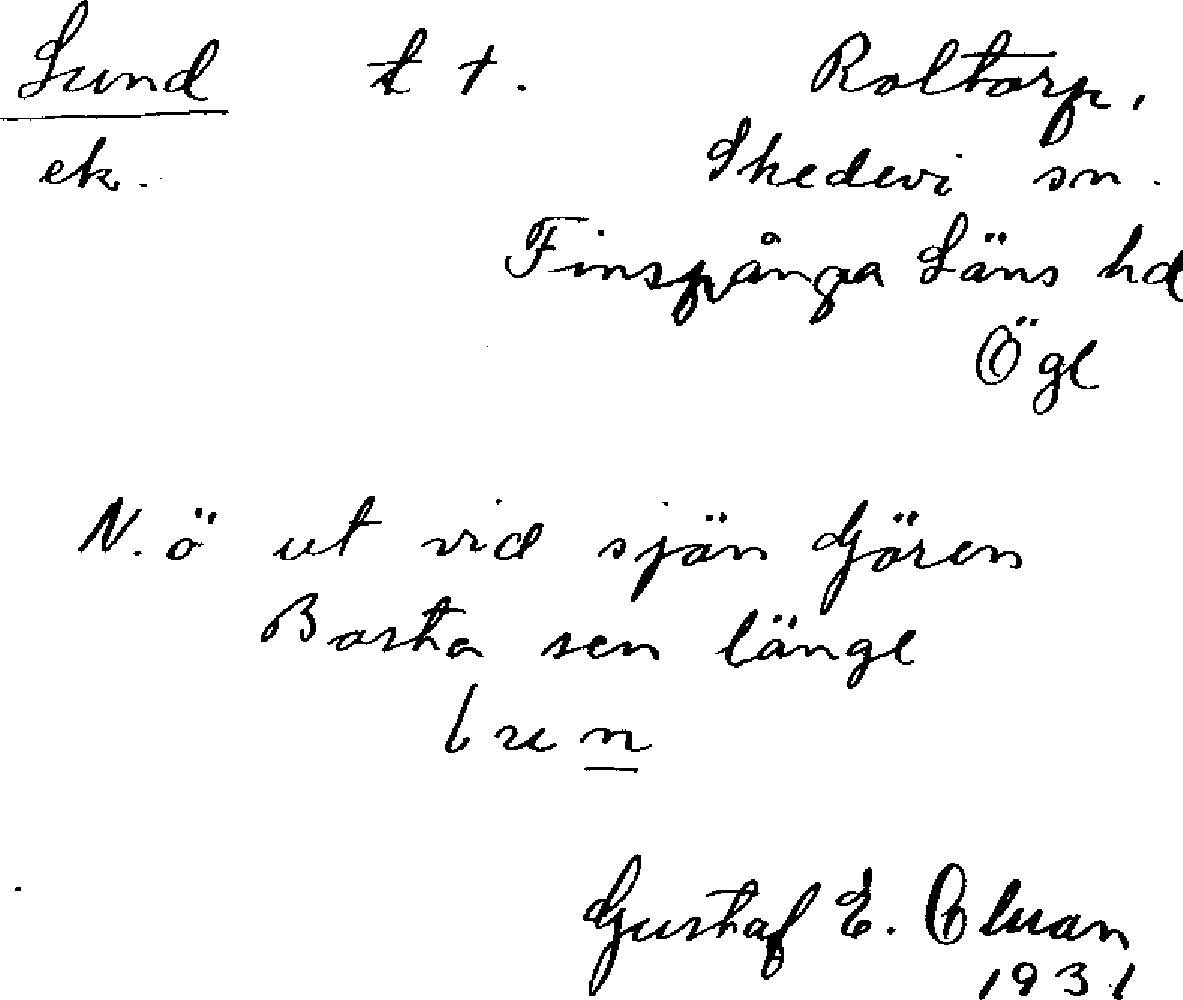 Lund t †. Roltorp,
ek. Skedevi sn.
Finspånga Läns hd
Ögl
N. ö ut vid sjön Gjören
Borta sen länge
lun
Gustaf E.
1931